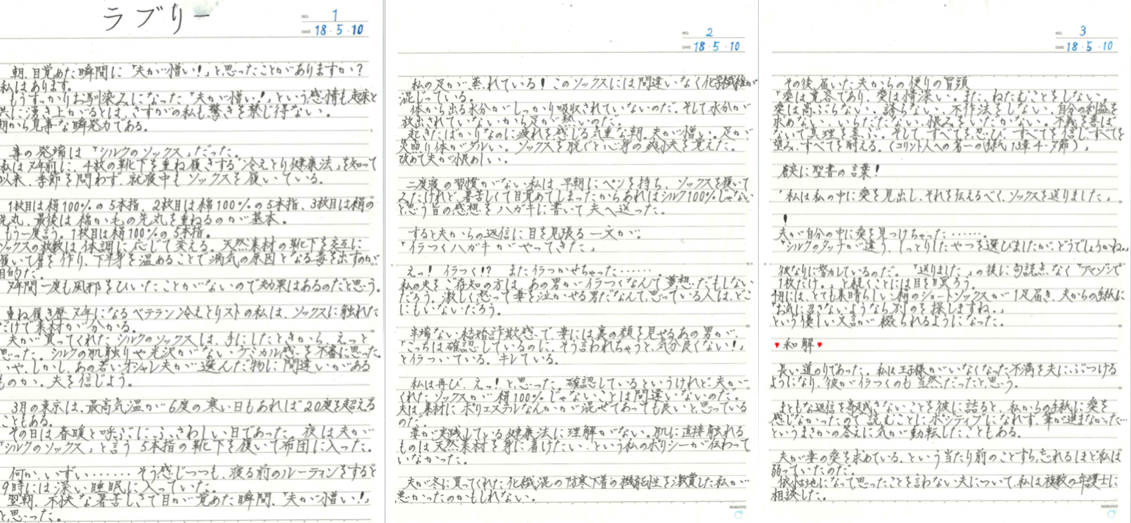 ラブリー
NO. 1
DATE 18・5・10
朝、目覚めた瞬間に「夫が憎い!」と思ったことがありますか?
私はあります。
もうすっかりお馴染みになった「夫が憎い!」という感情も起床と
共に湧き上がるとは、さすがの私も驚きを禁じ得ない。
朝から見事な瞬発力である。
事の発端は「シルクのソックス」だった。
私は7年前に、4枚の靴下を重ね履きする"冷えとり健康法"を知って
以来、季節を問わず、就寝中もソックスを履いている。
1枚目は絹100%の5本指、2枚目は綿100%の5本指、3枚目は絹の
先丸、最後は綿かもの先丸を重ねるのが基本。
もう一度言う。1枚目は絹100%の5本指。
ソックスの枚数は体調に応じて変える。天然素材の靴下を交互に
履いて層を作り、下半身を温めることで病気の原因となる毒を出すのが
目的だ。
7年間一度も風邪をひいたことがないので効果はあるのだと思う。
重ね履き歴7年になるベテラン冷えとりストの私は、ソックスに触れた
だけで素材が分かる。
夫が買ってくれたシルクのソックスは、手にしたときから、えっと
思った。シルクの肌触りや光沢がない。ケミカル感を不審に思った。
いや、しかし、あの若いオシャレ夫が選んだ物に間違いがある
ものか。夫を信じよう。
3月の東京は、最高気温が6度の寒い日もあれば20度を超える
こともある。
その日は春暖と呼ぶにふさわしい日であった。夜は夫が
「シルクのソックス」と言う5本指の靴下を履いて布団に入った。
何かいずい……そう感じつつも、寝る前のルーティンをすると
9時には深い睡眠に入っていた。
翌朝、不快な暑苦しさで目が覚めた瞬間、"夫が憎い!"
と思った。
NO. 2
DATE 18・5・10
私の足が蒸れている!このソックスには間違いなく化学繊維が
混じっている。
体から出る水分がしっかり吸収されていないのだ。そして水分が
放出されていないから足が熱いのだ。
起きたばかりなのに疲れを感じる貴重な朝。夫が憎い。足が
火照り体がダルい。ソックスを脱ぐと心身の疲労を覚えた。
改めて夫が恨めしい。
二度寝の習慣がない私は、早朝にペンを持ち、ソックスを履いて
みたけれど、暑苦しくて目覚めてしまったからあれはシルク100%じゃない
と思う旨の感想をハガキに書いて夫へ送った。
すると夫からの返信に目を見張る一文が。
「イラつくハガキがやってきた。」
えっ!イラつく!? またイラつかせちゃった……
私の夫をご存知の方は、あの男がイラつくなんて夢想だにもしない
だろう。激しく怒って妻を泣かせる男だなんて思っている人は、どこ
にもいないだろう。
半端ない結婚詐欺感で妻には裏の顔を見せるあの男が、
「こっちは確認しているのに、そう言われちゃうと気分良くない!」
とイラついている。キレている。
私は再び、えっ!と思った。確認しているというけれど、夫が
くれたソックスが絹100%じゃないことは間違いないのだ。
夫は、素材にポリエステルなんかが混ぜてあっても良いと思っている
のだ。
妻が実践している健康法に理解がない。肌に直接触れる
ものは天然素材を身に着けたい、という私のポリシーが伝わって
いなかった。
夫が冬に買ってくれた化繊混の防寒下着の機能性を激賞した私が
悪かったのかもしれない。
NO. 3
DATE 18・5・10
その後届いた夫からの便りの冒頭
「愛は寛容であり、愛は情深い。また、ねたむことをしない。
愛は高ぶらない、誇らない、不作法をしない、自分の利益を
求めない、いらだたない、恨みをいだかない。不義を喜ば
ないで真理を喜ぶ。そして、すべてを忍び、すべてを信じ、すべてを
望み、すべてを耐える。(コリント人への第一の手紙 13章4-7節)」
獄に聖書の言葉!
「私は私の中に愛を見出し、それを伝えるべく、ソックスを送りました。」
!
夫が自分の中に愛を見つけちゃった……
「シルクのタッチが違う、しっとりしたやつを選びましたが、どうでしょうかね。」
彼なりに努力しているのだ。「送りました」の後に句読点なく「アマゾンで
1枚だけ。」と続くことには目を瞑ろう。
4月には、とても素晴らしい絹のショートソックスが1足届き、夫からの手紙に
「お気に召さないようなら別のを探しますね。」
という優しい文言が綴られるようになった。
♥和解♥
長い道のりであった。私は王子様がいなくなった不満を夫にぶつける
ようになり、彼がイラつくのも当然だったと思う。
まともな返信を寄越さないことを彼に詰ると、私からの手紙に愛を
感じなかったので「読むことにポジティブになれず、筆が進まなかった…」
というまさかの答えに気が動転したこともある。
夫が妻の愛を求めている、という当たり前のことすら忘れるほど私は
弱っていたのだ。
依怙地になって思ったことを言わない夫について、私は複数の弁護士に
相談した。